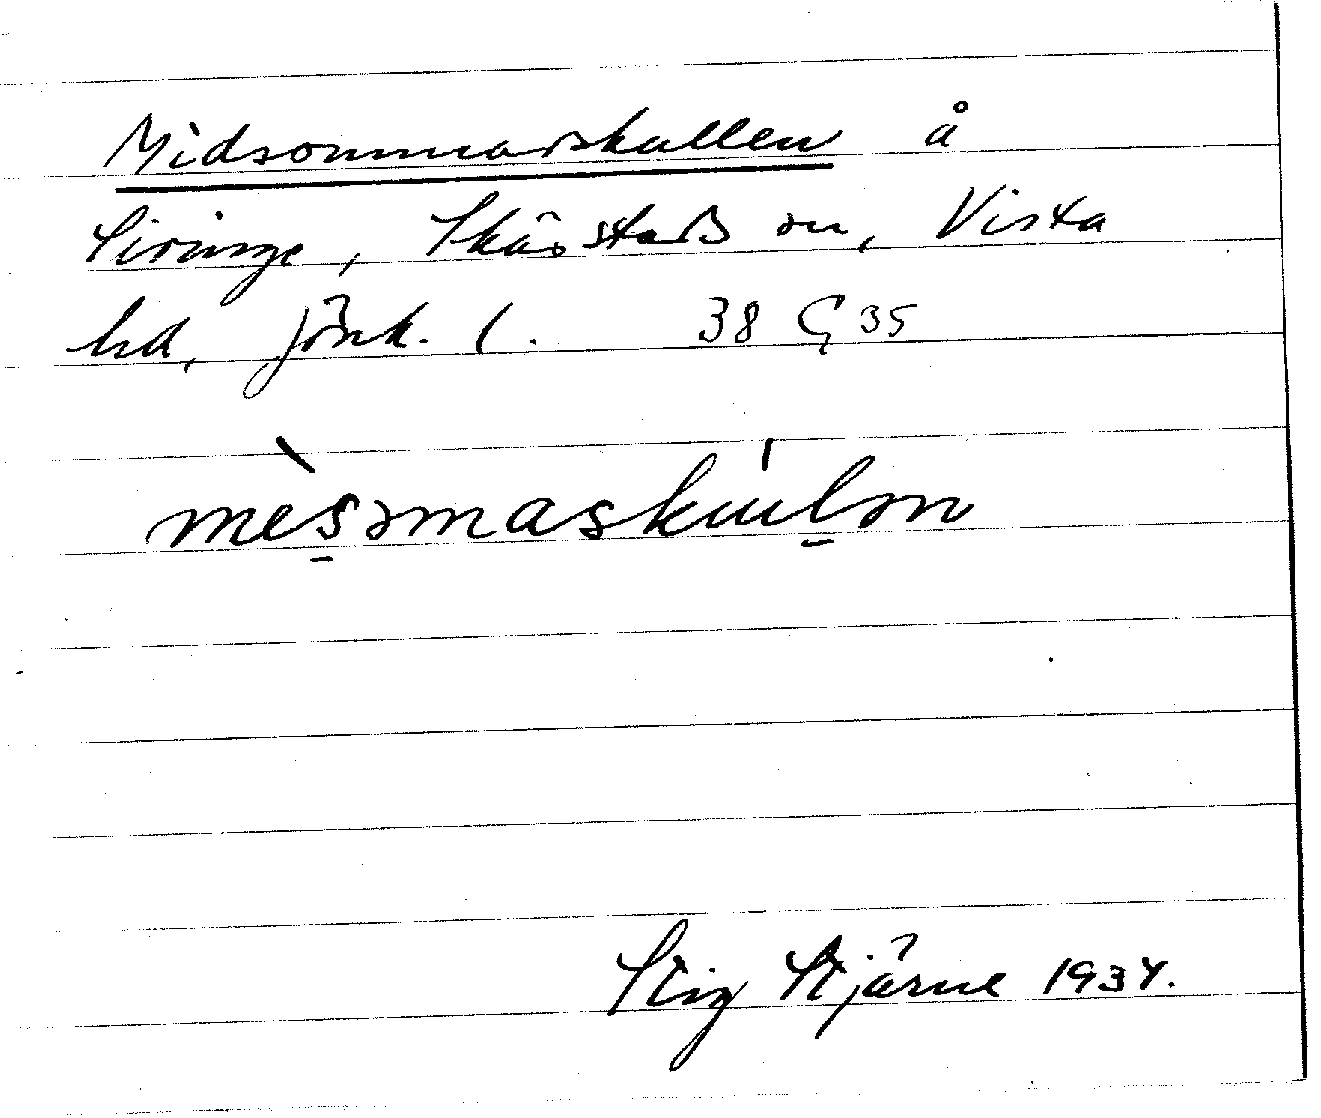 Midsommarskullen å
Siringe, Skärstads sn, Vista
hd, Jönk. l. 38 Ç 35
mèsəmaskúlən
Stig Stjärne 1934.